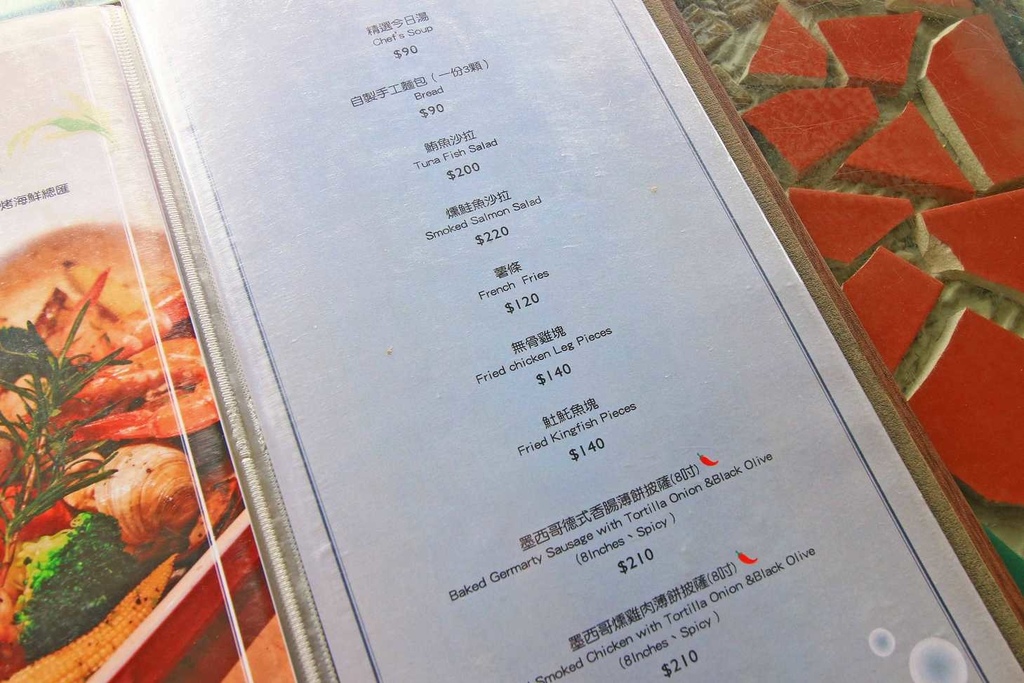 烤海鮮總匯
精選今日湯
Chef's Soup
$90
自製手工麵包（一份3顆）
Bread
$90
鮪魚沙拉
Tuna Fish Salad
$200
燻鮭魚沙拉
Smoked Salmon Salad
$220
薯條
French Fries
$120
無骨雞塊
Fried chicken Leg Pieces
$140
魟魠魚塊
Fried Kingfish Pieces
$140
墨西哥德式香腸薄餅披薩(8吋)
Baked Germarty Sausage with Tortilla Onion &Black Olive
(8Inches、Spicy )
$210
墨西哥燻雞肉薄餅披薩(8吋)
Smoked Chicken with Tortilla Onion &Black Olive
(8Inches、Spicy )
$210